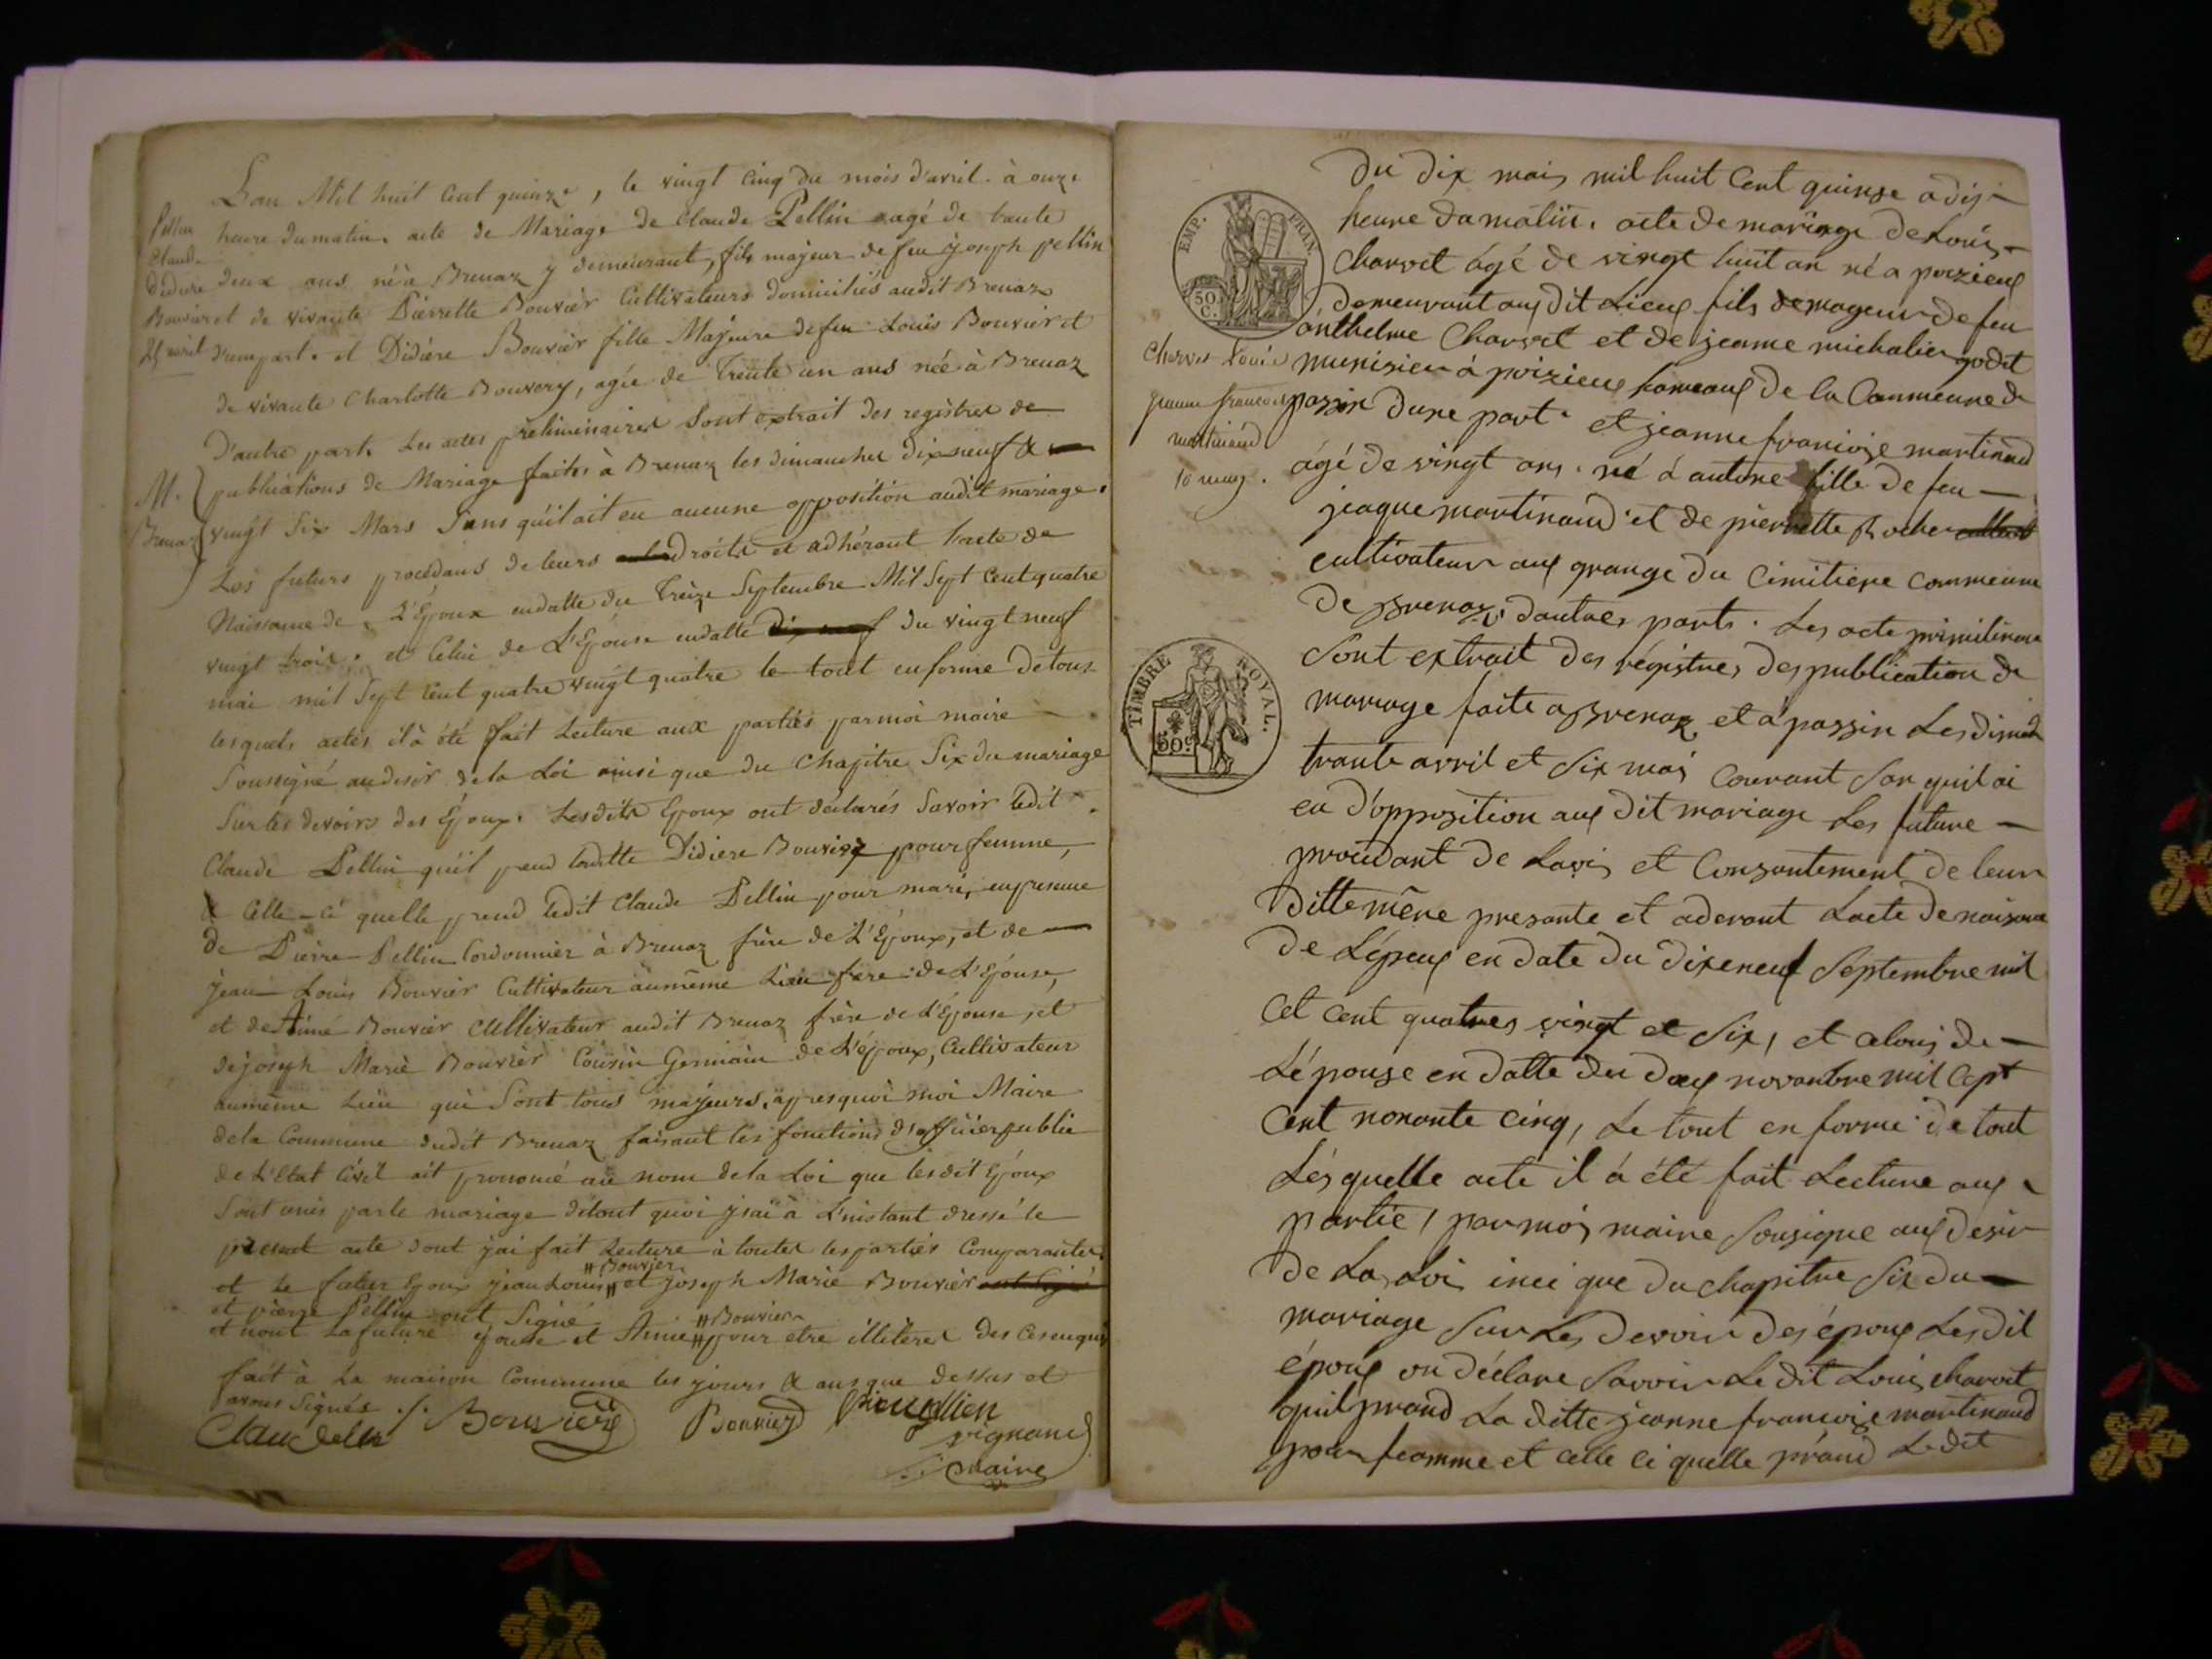 L'an Mil huit Cent quinze, le vingt Cinq du mois d'avril à onze
heure du matin. acte de Mariage de Claude Pellin agé de trente
deux ans né à Brenaz y demeurant, fils majeur de feu joseph pellin
et de vivante Pierrette Bouvier Cultivateurs domiciliés audit Brenaz
d'une part. et Didiére Bouvier fille Majeure de feu Louis Bouvier et
de vivante Charlotte Bouvery, agée de Trente un ans née à Brenaz
D'autre part. Les actes préliminaires Sont extrait des registres de
publications de Mariage faites à Brenaz les dimanches dix neuf &
vingt Six Mars Sans qu'il ait eu aucune opposition audit mariage.
Les futurs procédans de leurs droits et adhérant l'acte de
Naissance de L'Epoux en datte du Treize Septembre Mil Sept Cent quatre
vingt trois. et Celui de L'Epouse en datte du vingt neuf
mai mil Sept Cent quatre vingt quatre le tout en forme de tous
lesquels actes il à été fait Lecture aux parties par moi maire
Soussigné au desir de la Loi ainsi que du Chapitre Six du mariage
Sur les devoirs des Epoux. Lesdits Epoux ont déclarés Savoir ledit
Claude Pellin qu'il prend laditte Didiere Bouvier pour femme,
& Celle-ci quelle prend ledit Claude Pellin pour mari, en presence
de Pierre Pellin Cordonnier à Brenaz frère de L'Epoux, et de
jean Louis Bouvier Cultivateur au même Lieu frère de L'Epouse,
et de Aimé Bouvier Cultivateur audit Brenaz frère de L'Epouse, et
de joseph Marie Bouvier Cousin Germain de L'époux, Cultivateur
au même Lieu qui Sont tous majeurs, après quoi moi Maire
de la Commune dudit Brenaz faisant les fonctions d'officier public
de L'Etat Civil ait prononcé au nom de la Loi que lesdit Epoux
Sont unis par le mariage de tout quoi j'ai à L'instant dressé le
présent acte dont j'ai fait Lecture à toutes les parties Comparantes
et le futur Epoux jean Louis # Bouvier et joseph Marie Bouvier
et pierre Pellin ont Signé
et nont La future Epouse et Aimé # Bouvier pour etre illiteres des ce enquis
fait à La maison Commune les jours & ans que dessus et
avons Signés
Bouvier
Bouvier
vignand
maire
Pellin
Claude
Didiere
Bouvier
25 avril
M.
Brenaz
Du dix mais mil huit Cent quinze a dix
heure du matin. acte de mariage de Louis
Charvet âgé de vingt huit an né a poizieux
demeurant aux dit Lieux fils mageur de feu
anthelme Charvet et de jeanne michalier godet
munisier à poizieux hameaux de la Commeune de
passin dune part. et jeanne francoise martinand
âgé de vingt ans. né à autre fille de feu
jeaque martinand et de pierrette Rocher
cultivateur aux grange du Cimitiere commeune
de Brenaz, dautres parts. Les acte priminilinaire
Sont extrait des régistres des publication de
mariage faite a Brenaz et à passin Les dimanch
trante avril et Six mai Courant San quil ai
eu d'opposition aux dit mariage Les future
procédant de Lavis et Consantement de leur
ditte mêre presante et aderant Lacte de naisance
de Lépoux en date du dixeneuf Septembre mil
Cet Cent quatres vingt et Six, et celuis de
Lépouse en datte du deux novanbre mil Cept
Cent nonante Cinq, Le tout en forme de tout
Lésquelle acte il à été fait Lecture aux
partie, par mois maire Sousigne aux desir
de La Loi inci que du chapitre Six du
mariage Sur Les devoir des époux Les dit
époux on déclare Savoir Le dit Louis charvet
quil prand La ditte jeanne francoise martinand
pour feamme et celle ci quelle prand Le dit
Charvet Louis
jeanne francoise
martinand
10 may.
EMP. FRAN.
50 C.
TIMBRE ROYAL.
50 c